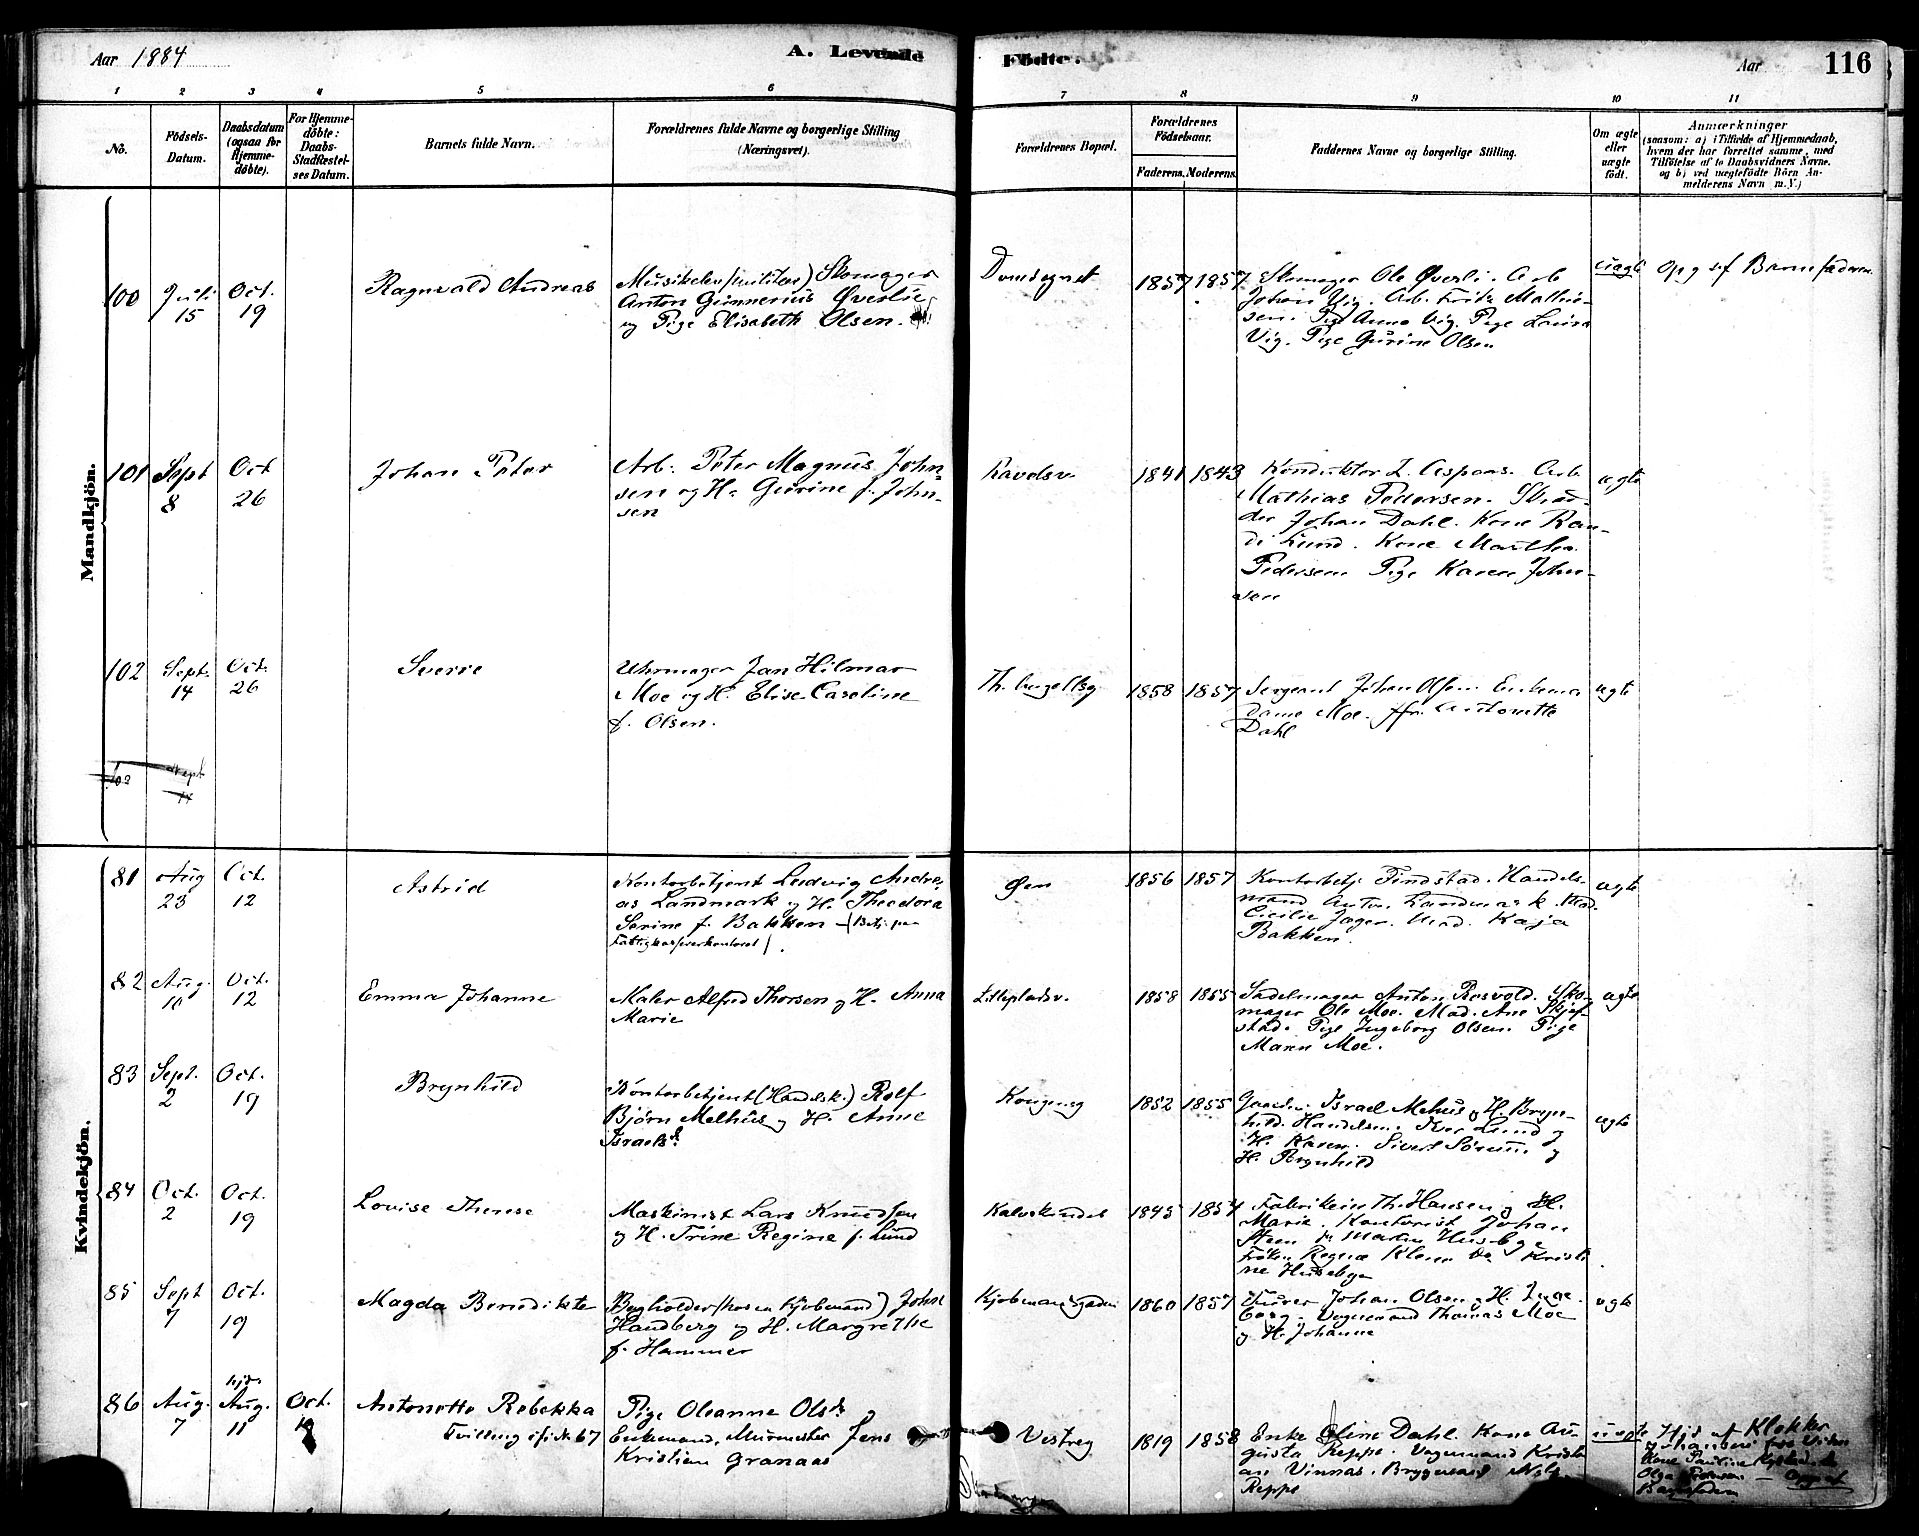 Aar 1884
A. Levende Födte.
Aar
116
1 2 3 4 5 6 7 8 9 10 11
No.
Födsels-
Datum.
Daabsdatum
(ogsaa for
Hjemme-
döbte).
For Hjemme-
döbte:
Daabs-
Stadfæstel-
ses Datum.
Barnets fulde Navn.
Forældrenes fulde Navne og borgerlige Stilling
(Næringsvei).
Forældrenes Bopæl.
Forældrenes
Födselsaar.
Faderens. Moderens.
Faddernes Navne og borgerlige Stilling.
Om ægte
eller
uægte
födt.
Anmærkninger
(saasom: a) i Tilfælde af Hjemmedaab,
hvem der har forrettet samme, med
Tilföielse af to Daabsvidners Navne.
og b) ved uægtefödte Börn An-
melderens Navn m. V.)
Mandkjön.
100
Juli
15
Oct.
19
Ragnvald Andreas
Skomager
Anton Gunnerius Øverlie
og Pige Elisabeth Olsen.
1857
1857
Skomager Ole Øverli. Arb.
Johan Vig. Arb. Fritz Mathie-
sen. Pige Anna Vig. Pige Laura
Vig. Pige Gurine Olsen
uægte
Opg af Barnefaderen
101
Sept
8
Oct
26
Johan Peter
Arb. Peter Magnus John-
sen og H. Gurine f. John-
sen
1841
1843
Konduktor L. Aspaas. Arb
Mathias Pedersen. Skræd-
der Johan Dahl. Kone Ran-
di Lund. Kone Martha
Pedersen Pige Karen John-
sen
ægte
102
Sept.
14
Oct.
26
Sverre
Uhrmager Jan Hilmar
Moe og H. Elise Caroline
f. Olsen.
1858
1857
Sergeant Johan Olsen. Enkema
dame Moe. Antonette
Dahl
ægte
103
Sept
14
Kvindekjön.
81
Aug
23
Oct.
12
Astrid
Kontorbetjent Ludvig Andre-
as Landmark og H. Theodora
Serine f. Bakken
Øen
1856
1857
Kontorbetj. Findstad. Handels-
mand Anton Landmark. Mad.
Cicilie Jæger. Mad. Kaja
Bakken.
ægte
82
Aug.
10
Oct.
12
Emma Johanne
Maler Alfred Thorsen og H. Anna
Marie
1858
1855
Sadelmager Anton Rosvold. Sko-
mager Ole Moe. Mad. Ane Skjef-
stad. Pige Ingeborg Olsen. Pige
Maren Moe.
ægte
83
Sept.
2
Oct.
19
Brynhild
Kontorbetjent (Handelsk.) Rolf
Bjørn Melhus og H. Anne
Israelsd.
Kongensg
1852
1855
Gaardm. Israel Mehus og H. Bryn-
hild. Handelsm. Iver Lund og
H. Karen. Sivert Sørum og
H. Brynhild
ægte
84
Oct.
2
Oct.
19
Lovise Therese
Maskinist Lars Knudsen
og H. Trine Regine f. Lund
Kalvskindet
1845
1854
Fabrikeier Th. Hansen og H.
Marie. Kontorist Johan
Steen
Frøken
ne Husebye
85
Sept
7
Oct.
19
Magda Benedikte
Bogholder (hos en Kjøbmand) John
Handberg og H. Margrethe
f. Hammer
Kjøbmandsgaden
1860
1857
Johan Olsen og H. Inge-
borg. Vognmand Thomas Moe
og H. Johanne
ægte
86
Aug.
7
hjd.
Aug.
11
Oct.
19
Antonette Rebekka
Tvilling
Pige Oleanne Olsdr. og
Enkemand, Murmester Jens
Kristian Granaas
Vestreg
1819
1858
Enke Oline Dahl. Kone Au-
gusta Reppe. Vognmand Kristi-
an Vinnas. Bryggemand Nils
Reppe
uægte
Hjd af Klokker
Kone Pauline
Olga
Barnefaderen